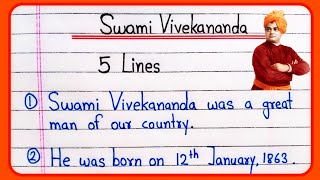 Swami Vivekananda
5 Lines
① Swami Vivekananda was a great
man of our country.
② He was born on 12th January, 1863.